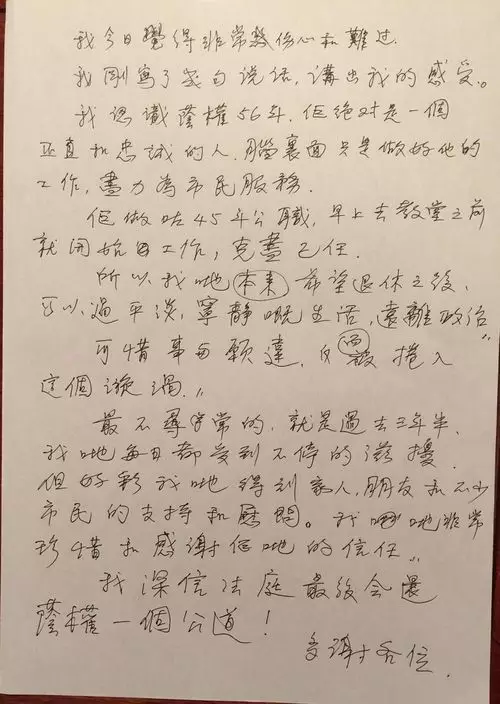 我今日覺得非常傷心和難过.
我剛寫了幾句说话，講出我的感受。
我認識蔭權56年. 佢绝对是一個
正直和忠誠的人. 腦裏面只是做好他的
工作，盡力為市民服務.
佢做咗45年公職, 早上去教堂之前
就開始日工作, 克盡己任.
所以我哋本來希望退休之後、
可以過平淡, 寧静嘅生活, 遠離政治
可惜事与願違, 反而被捲入
這個漩渦.
最不尋常的, 就是過去三年半.
我哋每日都受到不停的滋擾
但好彩我哋得到家人, 朋友和不少
市民的支持和慰問。我哋非常
珍惜和感謝佢哋的信任
我深信法庭最後会還
蔭權一個公道！
多謝各位.